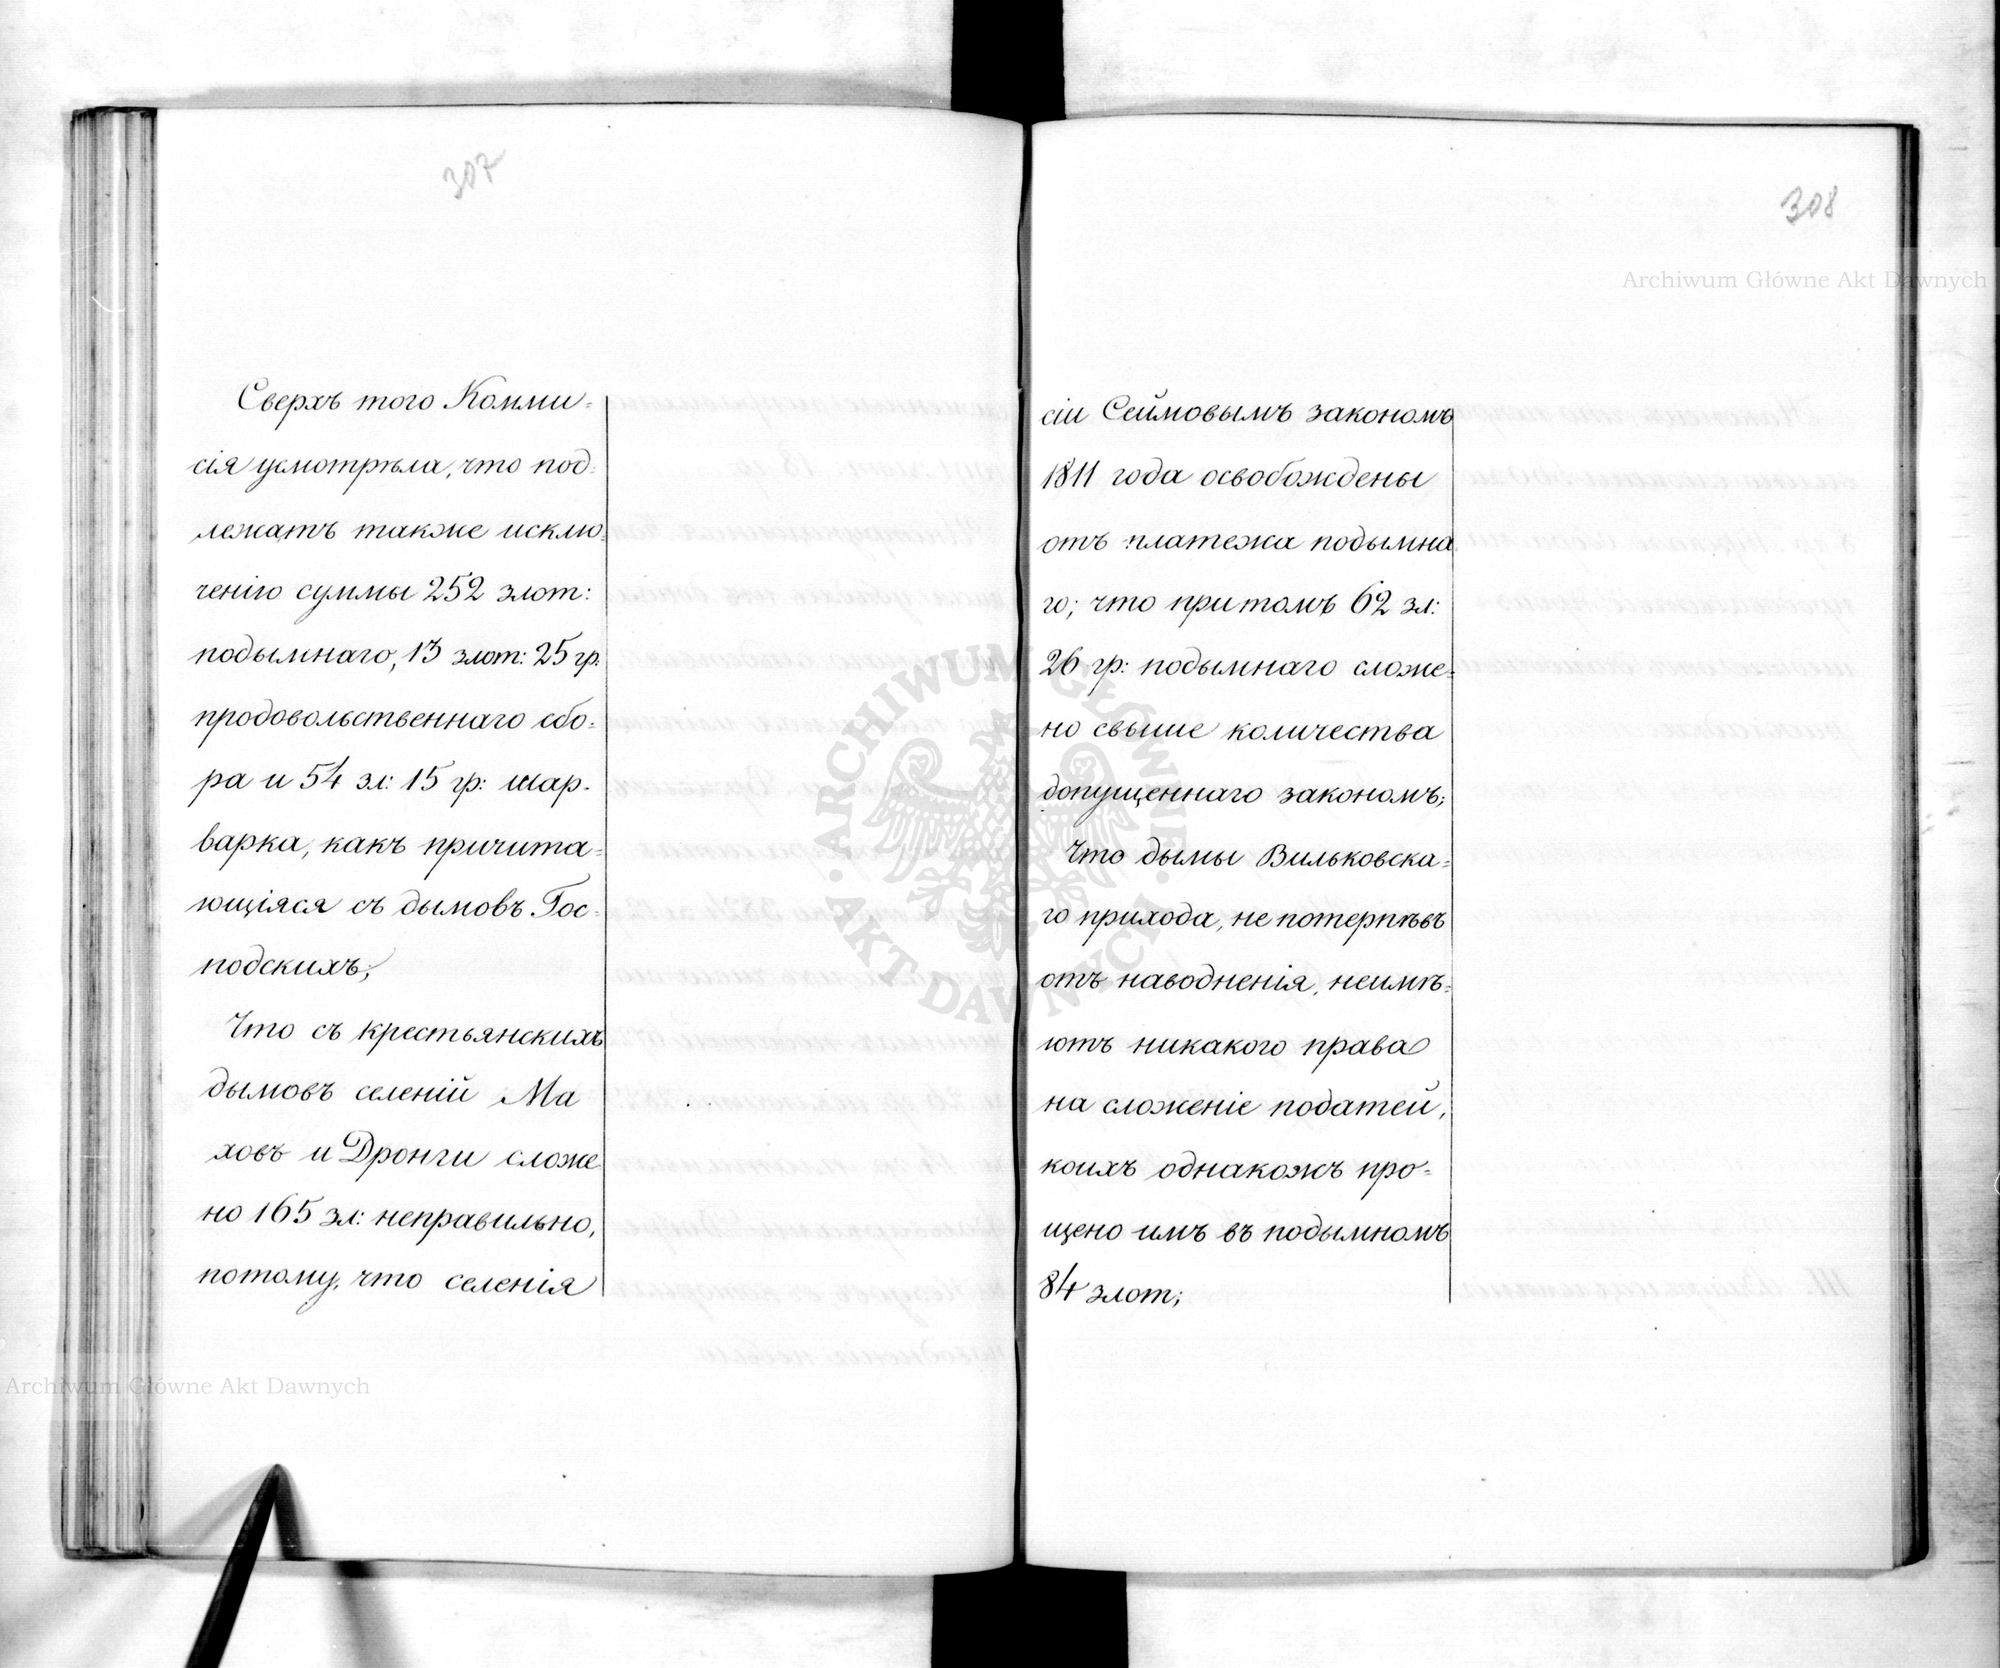 307
Сверхъ того Комми=
сія усмотрѣла, что под=
лежатъ также исклю=
ченію суммы 252 злот:
подымнаго, 13 злот: 25 гр.
продовольственнаго сбо=
ра и 54 зл: 15 гр: шар=
варка, какъ причита=
ющіяся съ дымовъ Гос=
подскихъ;
Что съ крестьянскихъ
дымовъ селеній Ма
ховъ и Дронги сложе
но 165 зл: неправильно,
потому, что селенія
308
сіи Сеймовымъ закономъ
1811 года освобождены
отъ платежа подымна
го; что притомъ 62 зл:
26 гр: подымнаго сложе=
но свыше количества
допущеннаго закономъ;
Что дымы Вильковска=
го прихода, не потерпѣвъ
отъ наводненія, неимѣ=
ютъ никакого права
на сложеніе податей,
коихъ однакожъ про=
щено имъ въ подымномъ
84 злот;
Archiwum Główne Akt Dawnych
Archiwum Główne Akt Dawnych
ARCHIWUM GŁÓWNE AKT DAWNYCH